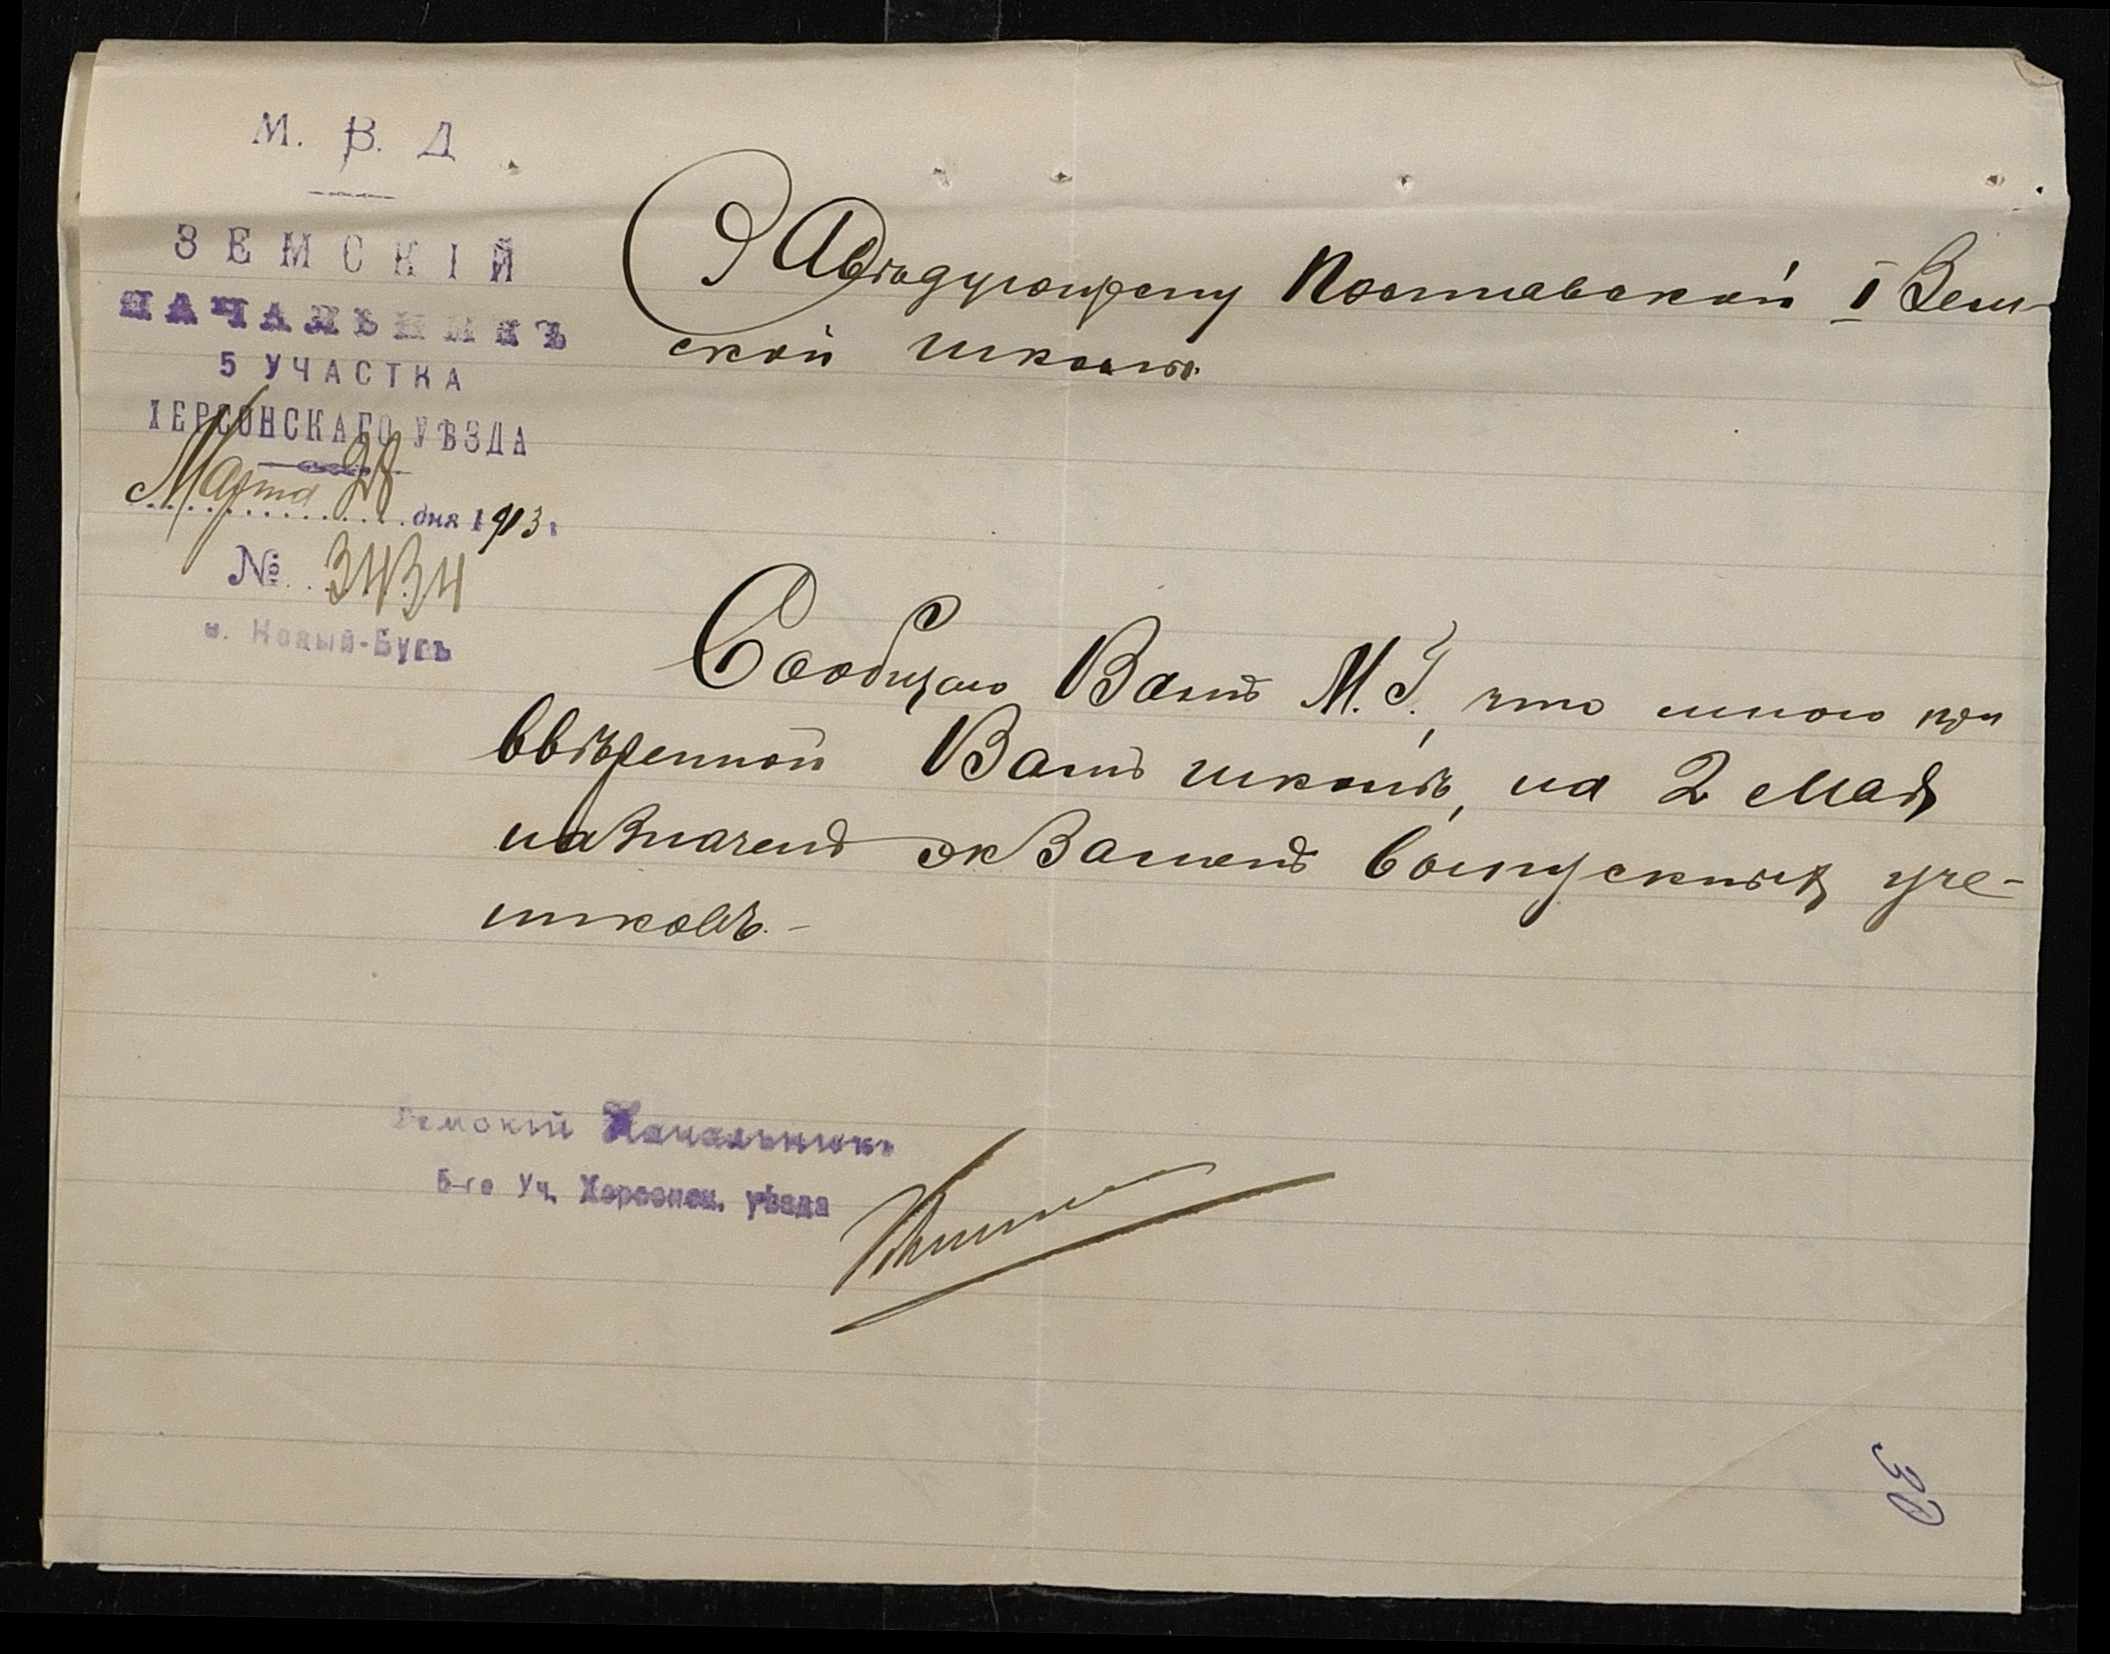 М. В. Д.
ЗЕМСКІЙ
НАЧАЛЬНИКЪ
5 УЧАСТКА
ХЕРСОНСКАГО УѢЗДА
Марта 28 дня 1913 г.
№ 3434
м. Новый-Бугъ
Завѣдующему Полтавской I Зем-
ской школы.
Сообщаю Вамъ М. Г., что мною при
ввѣренной Вамъ школѣ, на 2 Мая
назначенъ экзаменъ выпускныхъ уче-
никовъ. –
Земскій Начальникъ
5-го Уч. Херсонск. уѣзда
30